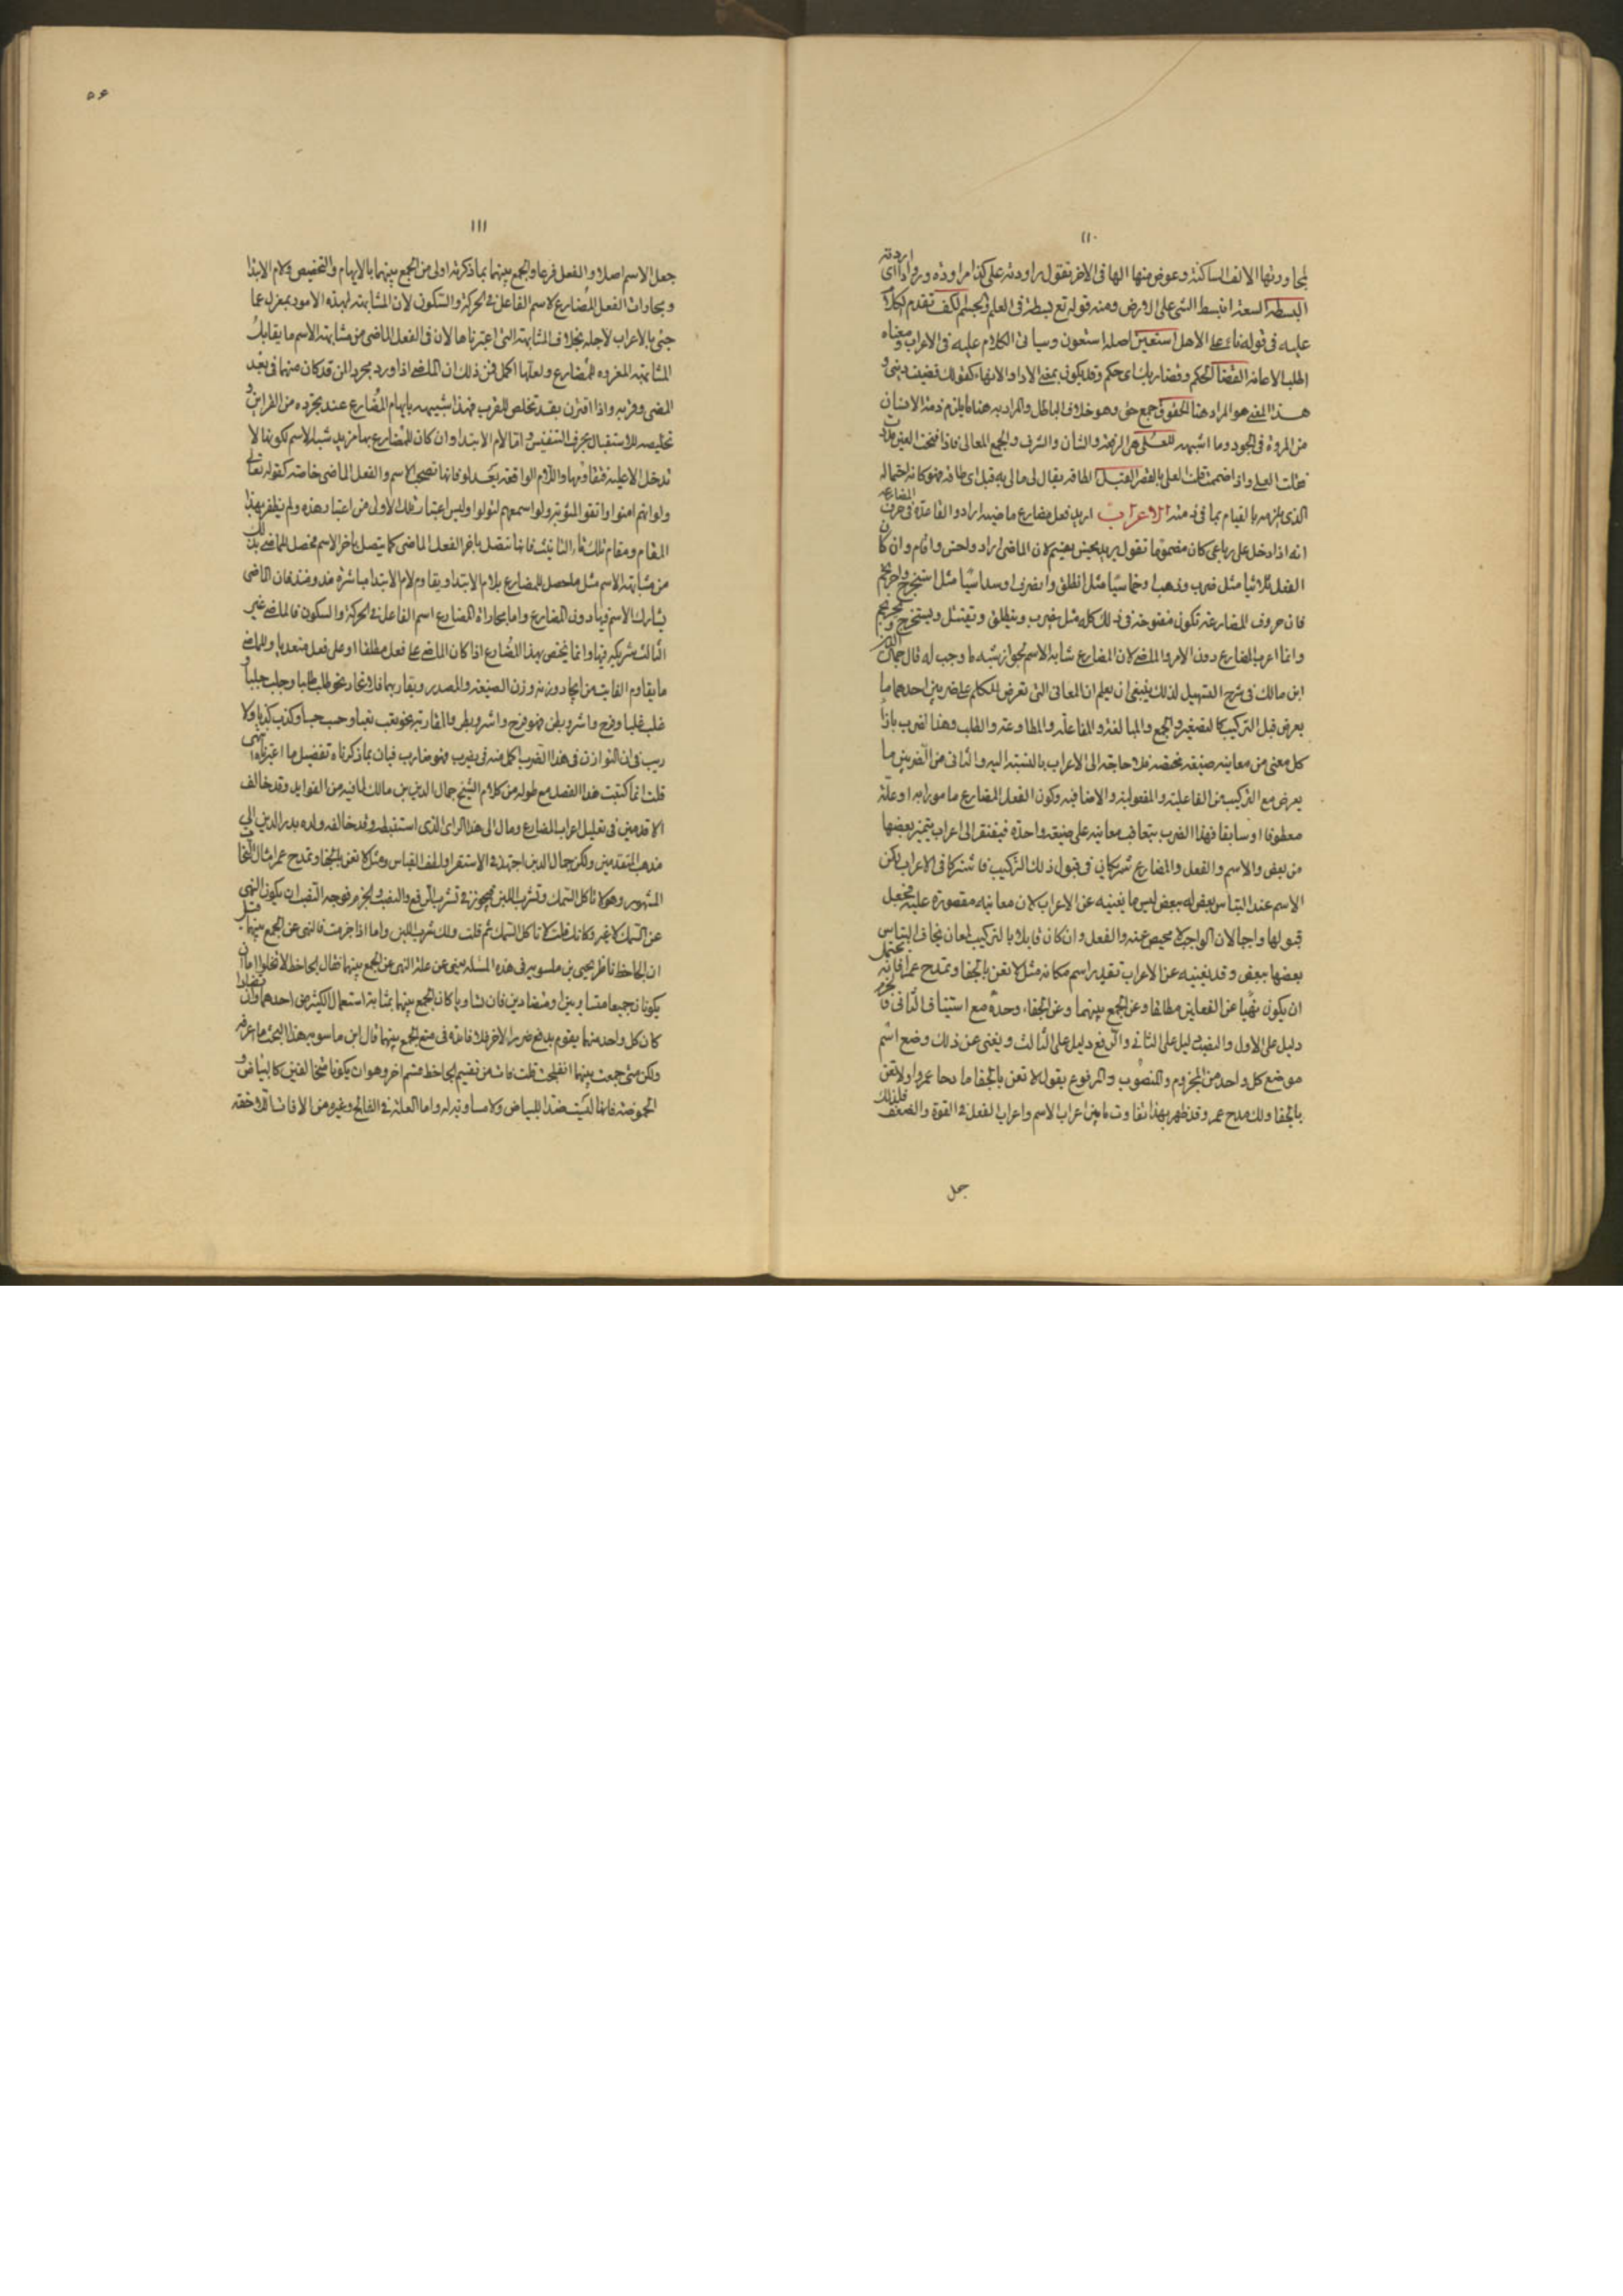 ١١٠
لمجاورتها الالف الساكنة وعوض منها الها فى الاخر تقول راودته على كذا مراودة وروادا اى اردته
البسطه السعة انبسط الشى على الارض ومنه قوله تع بسطة فى العلم والجسم لكف تقدم الكلام
عليه فى قوله ناء عن الاهل استعين اصله استعون وسياتى الكلام عليه فى الاعراب ومعناه
اطلب الاعانة القضا الحكم وقضا ربك اى حكم وقد يكون بمعنى الادا والانهاء كقولك قضيت دينى و
هذا المعنى هو المراد هنا الحقوق جمع حق وهو خلاف الباطل والمراد به هنا ما يلزم ذمة الانسان
من المروة فى الجود وما اشبهه للعلى هى الرفعة والشان والشرف والجمع المعالى فاذا فتحت العين مددت
فقلت العلا واذا ضممت قلت العلى بالقصر القبل الطاقه يقال لى مالى به قبل اى طاقه فهو كانه احتماله
الذى يلزمه بالقيام بما فى ذمته الاعراب اريد فعل مضارع ماضيه اراد والقاعدة فى حرف المضارعة
انه اذا دخل على رباعى كان مضموما تقول يريد يحسن يقيم لان الماضى اراد واحسن واقام وان كان
الفعل ثلاثيا مثل ضرب وذهب او خماسيا مثل انطلق وانصرف او سداسيا مثل استخرج واحرنجم
فان حروف المضارعة تكون مفتوحة فى ذلك كله مثل يضرب وينطلق ويقتتل ويستخرج ويحرنجم
وانما اعرب المضارع دون الامر والماضى لان المضارع شابه الاسم بجواز شبه ما وجب له قال جمال الدين
ابن مالك فى شرح التسهيل لذلك ينبغى ان يعلم ان المعانى التى تعرض للكلم على ضربين احدهما ما
يعرض قبل التركيب كالتصغير والجمع والمبالغة والمفاعلة والمطاوعة والطلب وهذا الضرب بازا
كل معنى من معانيه صيغة تخصه فلا حاجة الى الاعراب بالنسبة اليه والثانى من الضربين ما
يعرض مع التركيب من الفاعلية والمفعولية والاضافيه وكون الفعل المضارع مامورا به او علة
معطوفا او سابقا فهذا الضرب تتعاقب معانيه على صيغة واحدة فيفتقر الى اعراب يتميز بعضها
من بعض والاسم والفعل والمضارع شريكانى فى قبول ذلك التركيب فاشتركا فى الاعراب لكن
الاسم عند التباس بعض له ببعض ليس ما يغنيه عن الاعراب لان معانيه مقصورة عليه فجعل
قبولها واجبا لان الواجب لا محيص عنه والفعل وان كان قابلا بالتركيب لمعان يخاف التباس
بعضها ببعض وقد يغنيه عن الاعراب تقدير اسم مكانه مثل لا تعن بالجفا وتمدح عمرا فانه يحتمل
ان يكون نهيا عن الفعلين مطلقا وعن الجمع بينهما وعن الجفاء وحده مع استيناف الثانى فالجزم
دليل على الاول والنصب دليل على الثانى والرفع دليل على الثالث ويغنى عن ذلك وضع اسم
موضع كل واحد من المجزوم والمنصوب والمرفوع بقولك لا تعن بالجفا مادحا عمروا ولا تعن
بالجفا ولك مدح عمر وقد ظهر بهذا تفاوت ما بين اعراب الاسم واعراب الفعل فى القوة والضعف فلذلك
جعل
٥٦
١١١
جعل الاسم اصلا والفعل فرعا والجمع بينهما بما ذكرته اولى من الجمع بينهما بالابهام والتخصيص ولام الابتدا
ومجاراة الفعل المضارع لاسم الفاعل فى الحركة والسكون لان المشابهة بهذه الامور بمعزل عما
جئ بالاعراب لاجله بخلاف المشابهة التى اعتبرناها لان فى الفعل الماضى من مشابهة الاسم ما يقابل
المشابهة المعزوه للمضارع ولعلها اكمل فمن ذلك ان الماضى اذا ورد مجردا من قد كان مبهما فى بعد
المضى وقربه واذا اقترن بقد تخلص للقرب فهذا شبيه بابهام المضارع عند تجرده من القراين و
تخليصه للاستقبال بحرف التنفيس واما لام الابتدا وان كان للمضارع بها مزيد شبه بالاسم لكونها لا
تدخل الا عليه فتقاومها واللام الواقعة بعد لو فانها تصحب الاسم والفعل الماضى خاصة كقوله تعالى
ولو انهم امنوا واتقوا لمثوبة ولو اسمعهم لتولوا وليس اعتبار تلك الاولى من اعتبار هذه ولم يظفر بهذا
المقام ومقام تلك تاء التانيث فانها تتصل باخر الفعل الماضى كما يتصل باخر الاسم فحصل للماضى بذلك
من مشابهة الاسم مثل ما حصل للمضارع بلام الابتدا ويقاوم لام الابتدا مباشرة مذ ومنذ فان الماضى
يشارك الاسم فيها دون المضارع واما مجاراة المضارع اسم الفاعل فى الحركة والسكون فالماضى غير
الثالث شريكه فيها وانما يختص بهذا المضارع اذا كان الماضى على فعل مطلقا او على فعل متعديا وللماضى
ما يقاوم الفايت من اتحاد وزنه وزن الصيغة والمصدر وتقاربهما فالاتحاد نحو طلب طلبا وجلب جلبا و
غلب غلبا وفرح واشر وبطر فهو فرح واشر وبطر والمقاربة نحو تعب تعبا وحسب حسبا وكذب كذبا ولا
ريب فى ان التوازن فى هذا الضرب اكمل منه فى يضرب فهو ضارب فبان بما ذكرناه تفضيل ما اعتبرناه انتهى
قلت انما كتبت هذا الفصل مع طوله من كلام الشيخ جمال الدين بن مالك لما فيه من الفوايد وقد خالف
الاقدمين فى تعليل اعراب المضارع ومال الى هذا الراى الذى استنبطه وقد خالفه ولده بدر الدين الى
مذهب المتقدمين ولكن جمال الدين اجتهد فى الاستقرا ولطف القياس ومثل لا تعن بالجفا وتمدح عمرا مثال النحاة
المشهور وهو لا تاكل السمك وتشرب اللبن فيجوز فى تشرب الرفع والنصب والجزم فوجه النصب ان يكون النهى
عن السمك لا غير وكانك قلت لا تاكل السمك ثم قلت ولك شرب اللبن واما اذا جزمت فالنهى عن الجمع بينهما قيل
ان الجاحظ ناظر يحيى بن ماسويه فى هذه المسئلة يعنى عن علة النهى عن الجمع بينهما فقال الجاحظ لا تخلوا اما ان
يكونان جميعا متساويين او متضادين فان تساويا كان الجمع بينهما بمثابة استعمال الكثير من احدهما وان تضادا
كان كل واحد منهما يقوم بدفع ضرر الاخر فلا فائدة فى منع الجمع بينهما قال ابن ماسويه هذا البحث ما اعرفه
ولكن متى جمعت بينهما انفلجت قلت فات من تقسيم الجاحظ قسم اخر وهو ان يكونا متخالفين كالبياض و
الحموضة فانها ليست ضدا للبياض ولا مساوية له واما العلة فى الفالج وغيره من الافات اللاحقه